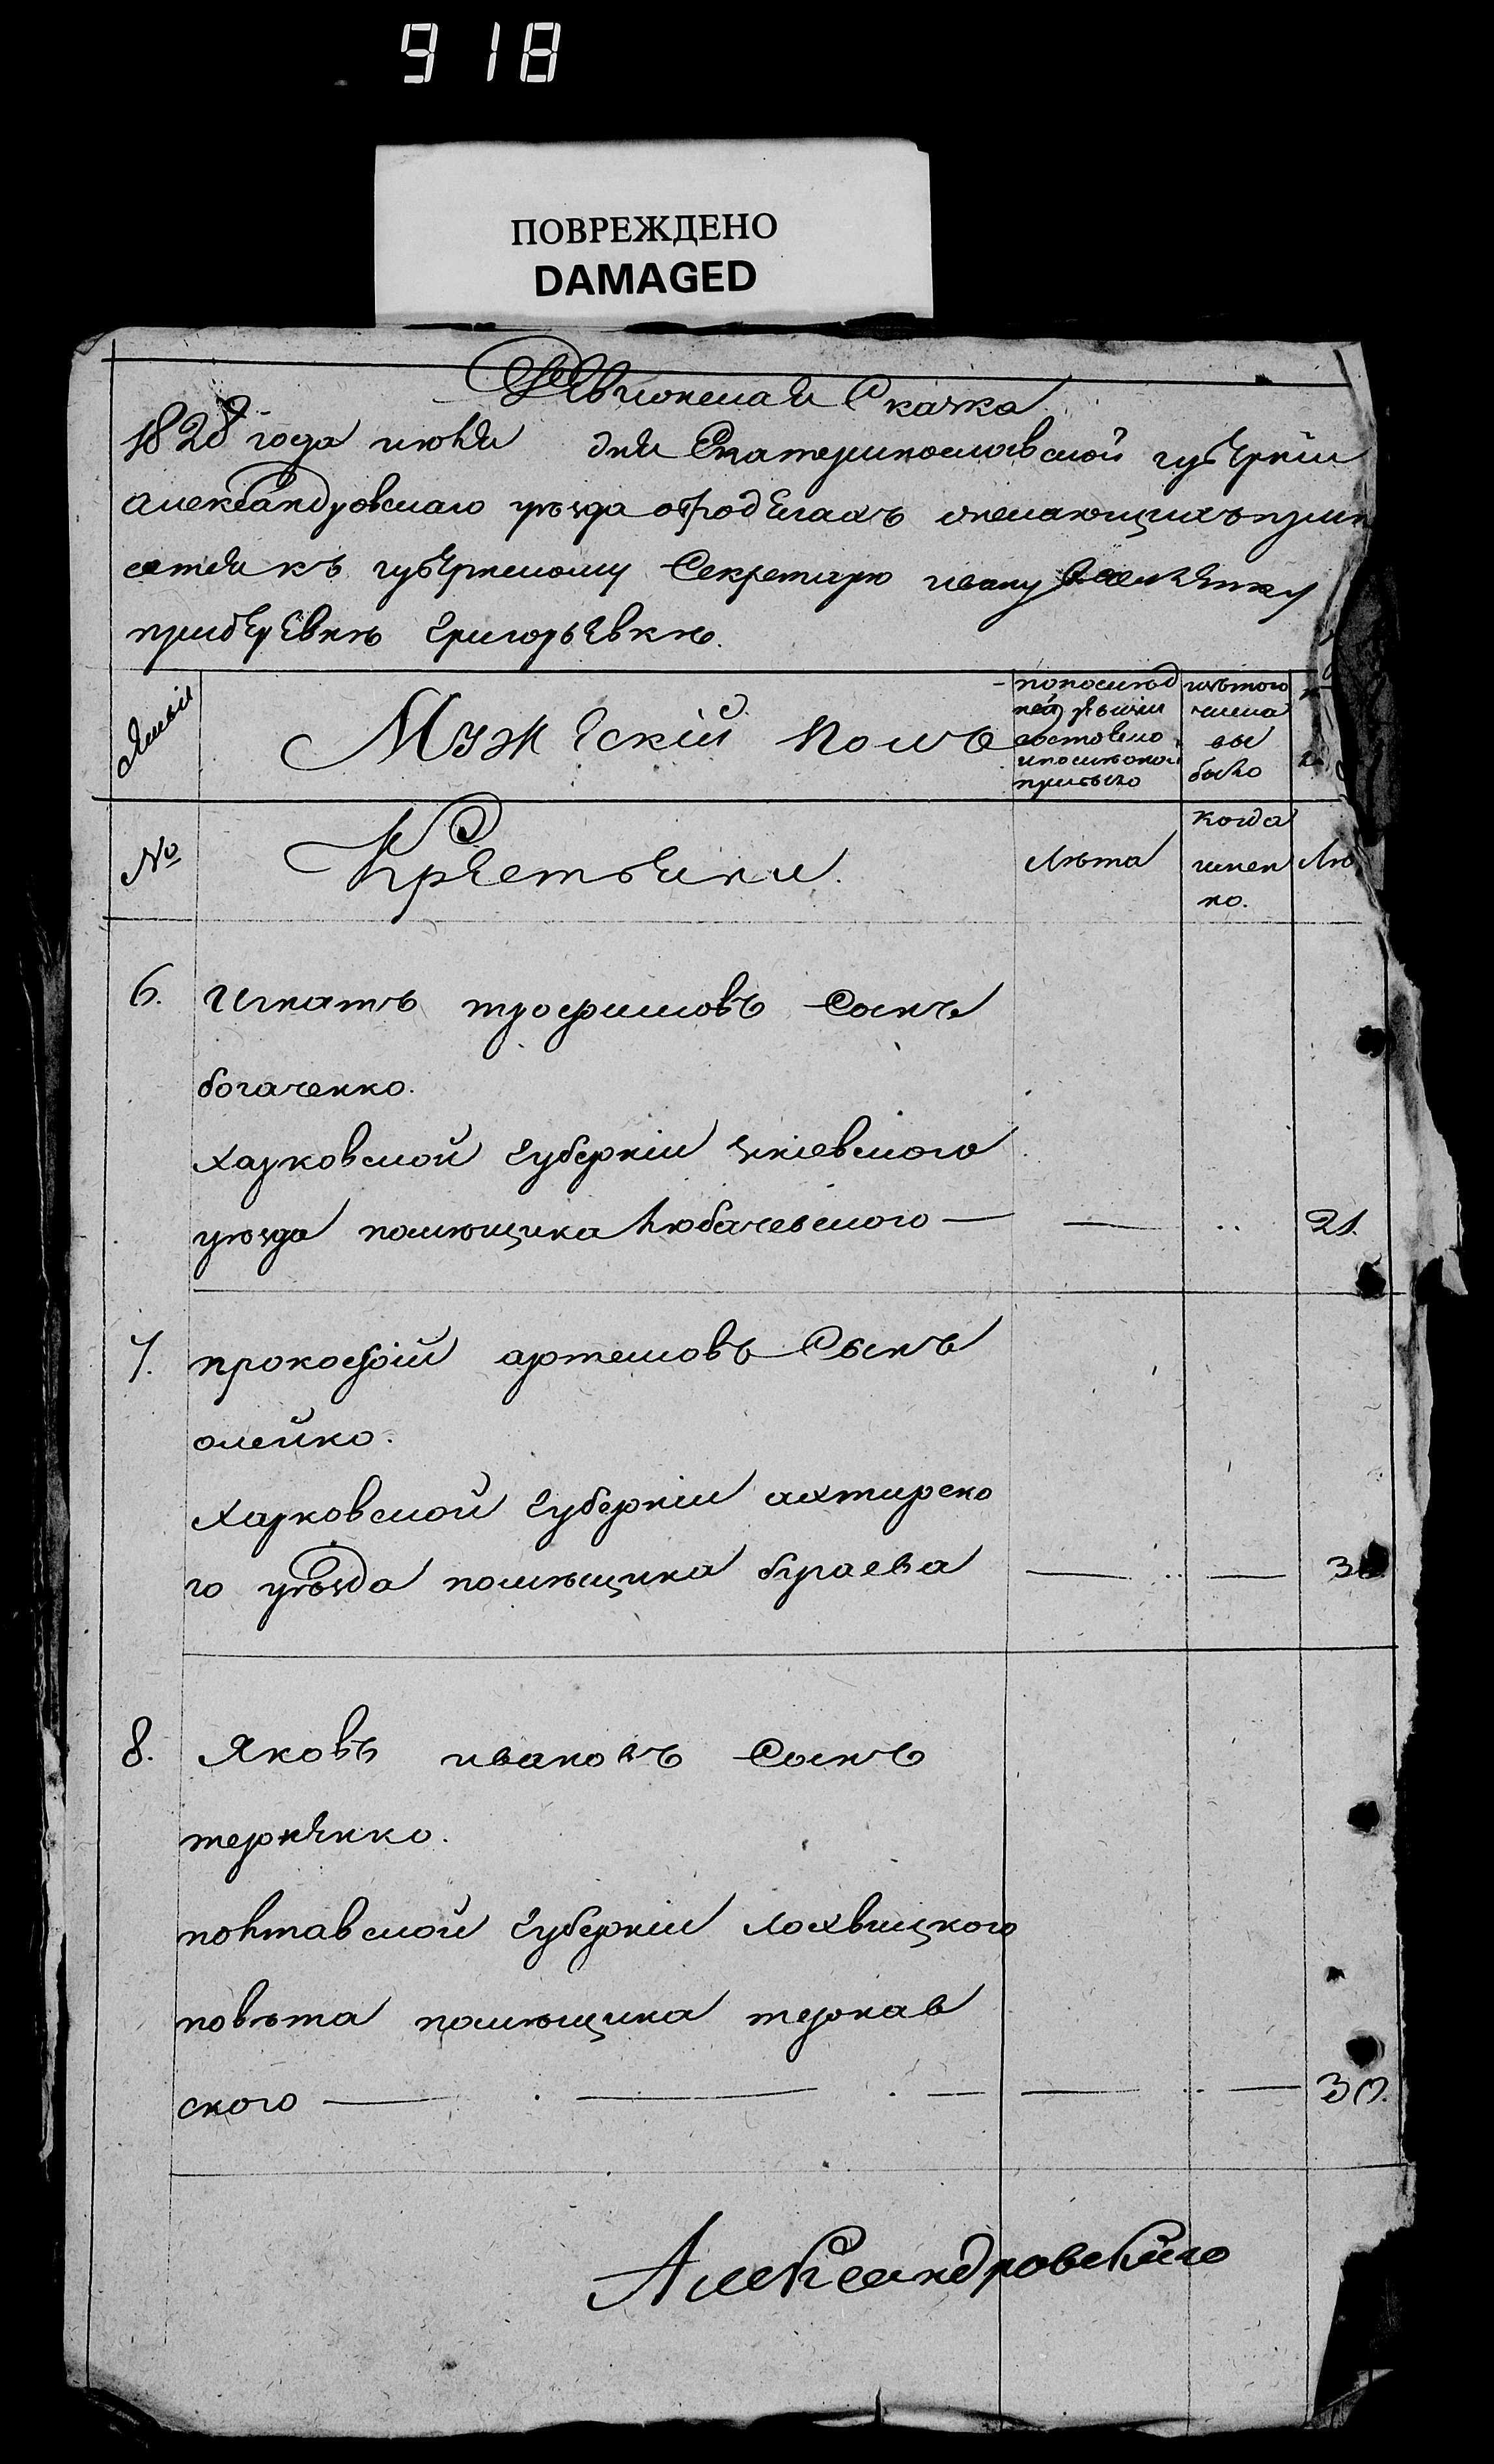 918
ПОВРЕЖДЕНО
DAMAGED
Ревизская Сказка
1828 года июля дня Екатеринославской губерніи
александровскаго уезда о бродягахъ желающихъ при
сатся къ губернскому Секретарю ивану
при деревнѣ григорьевкѣ.
Мужескій полъ
по послед
ней ревизіи
состояло
и после оной
прибыло
изътого
числа
вы
было
№
Крестьяни.
лѣта
когда
имен
но.
Лѣ
6. Игнатъ трофимовъ Сынъ
богаченко.
харковской губерніи зміевского
уѣзда помѣщика любачевского — — .. 21.
7. прокофій артемовъ Сынъ
олейко.
харковской губерніи ахтирско
го уѣзда помѣщика бураева — .. —
8. Яковъ ивановъ Сынъ
терненко.
полтавской губерніи лохвицкого
повѣта помѣщика тернав
ского — . — . — — .. — 30.
Александровского